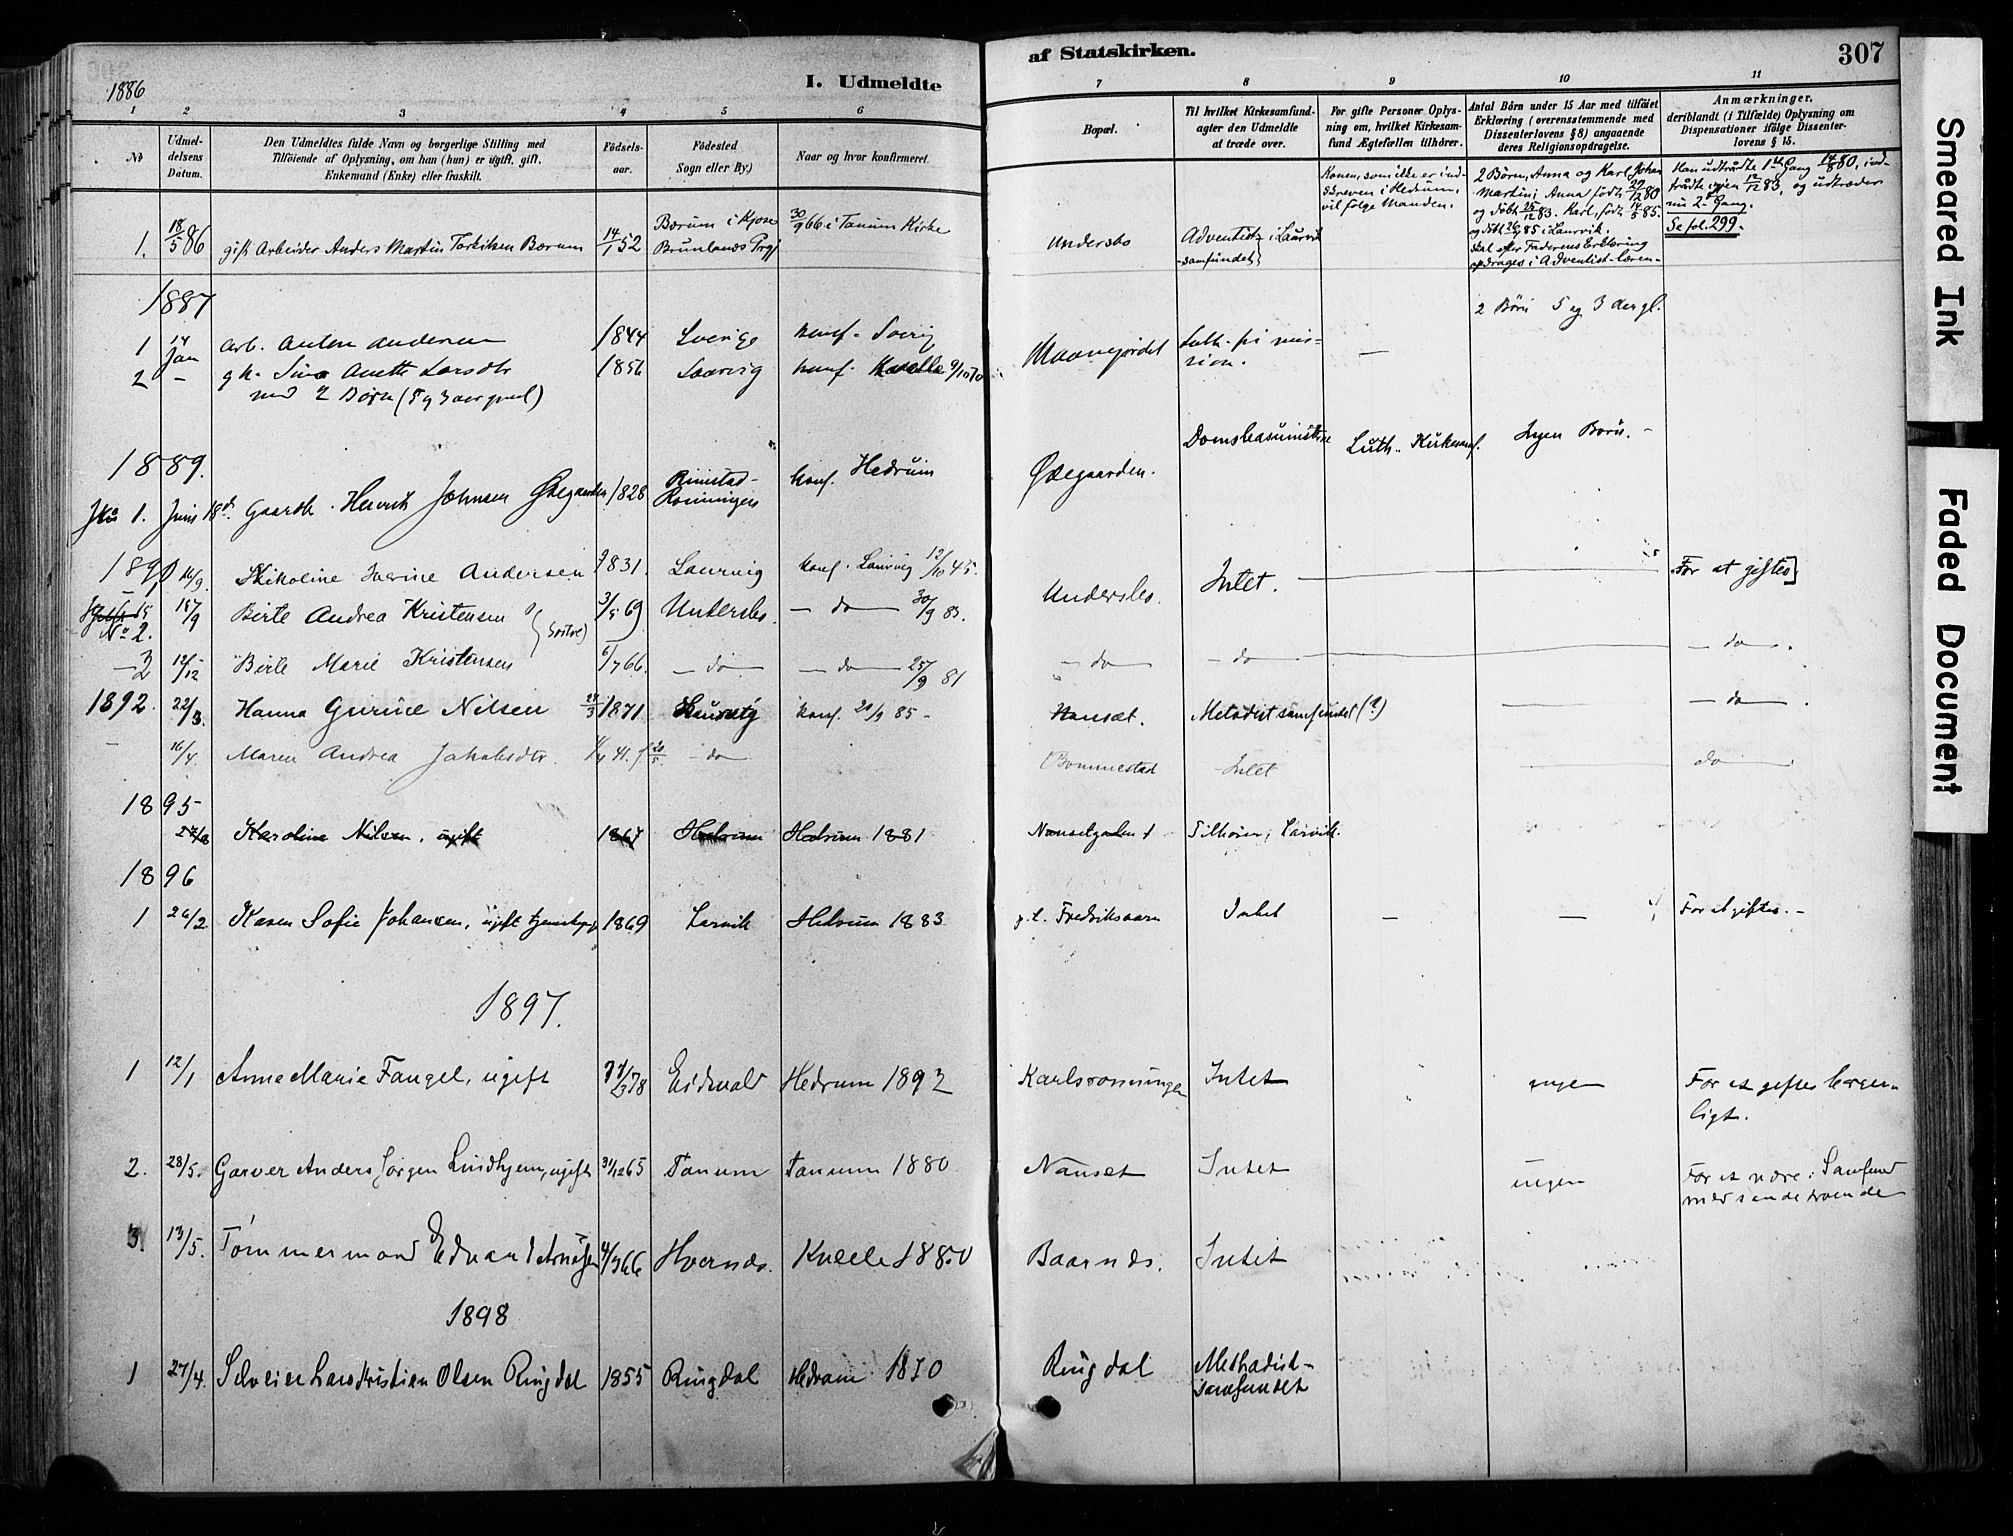 1886
I. Udmeldte
af Statskirken.
307
1 2 3 4 5 6 7 8 9 10 11
No
Udmel-
delsens
Datum.
Den Udmeldtes fulde Navn og borgerlige Stilling med
Tilföiende af Oplysning, om han (hun) er ugift, gift,
Enkemand (Enke) eller fraskilt.
Födsels-
aar.
Födested
Sogn eller By.)
Naar og hvor konfirmeret.
Bopæl.
Til hvilket Kirkesamfund-
agter den Udmeldte
at træde over.
For gifte Personer Oplys-
ning om, hvilket Kirkesam-
fund Ægtefællen tilhörer.
Antal Börn under 15 Aar med tilföiet
Erklæring (overensstemmende med
Dissenterlovens § 8) angaaende
deres Religionsopdragelse.
Anmærkninger,
deriblandt (i Tilfælde) Oplysning om
Dispensationer ifölge Dissenter-
lovens § 15.
1. 18/5 86 gift Arbeider Anders Martin Torkilsen Bærum 14/1 52
Bærum i Kjose
Brunlands Prgj
30/9 66 i Tanum Kirke
Undersbo
Adventist- i Laurvik
-samfundet
Konen, som ikke er ind-
skreven i Hedrum,
vil følge Manden.
2 Børn, Anna og Karl Johan
Martin; Anna født 29/12 80
og døbt 25/12 83. Karl, født 14/5 85.
og døbt 85 i Laurvik.
skal efter Faderens Erklæring
opdrages i Adventist-læren-
Han udtrådte 1ste Gang 14/8 80, ind-
trådte igjen 12/12 83, og udtræder
nu 2den Gang.
Se fol. 299.
1887
1 14 Jan Arb. Anten Andersen 1844 Sverige konf. Sverig
Maanejordet
Luth. fri mis-
sion.
—
2 Börn 5 og 3 Aar gl.
2 - gk. Sina Anette Larsdtr 1856 Laurvig konf. 9/10 70
med 2 Børn (5 og 3 aar gml)
1889.
No 1. Juni 18d. Gaardb. Henrik Johnsen Ødegaarden 1828
Rimstad-
Rønningen
konf. Hedrum
Ødegaarden.
Luth. Kirkesamf.
Ingen Børn. -
1890 16/9 Nikoline Iverine Andersen 1831. Laurvig konf. Laurvig 12/10 45.
Undersbo. Intet. For at giftes
No 2. 18/9 Birte Andrea Kristensen 3/5 69 Undersbo. — do — 30/9 83.
- 3 12/12 Birte Marie Kristensen 6/7 66. — do — — do — 25/9 81
— do — — do — — do —.
1892. 22/3. Hanna Gurine Nilsen 1871 Laurvig konf. 20/9 85 -
Nanset. Metodist samfundet (?) — — do —
16/4. Maren Andrea Jakobsdtr. 41. — do —
Bommestad Intet — do —
1895
27/8 Karoline Nilsen, ugift 1867 Hedrum Hedrum 1881
1896
1 26/2 Karen Sofie Johansen, ugift tjenestepige 1869 Larvik Hedrum 1883
p.t. Fredriksværn Intet — — For at giftes. -
1897.
1 12/1 Anne Marie Fangel, ugift 78 Eidsvold Hedrum 1892
Karlsrønningen Intet ingen For at giftes borger-
ligt.
2. 28/5. Garver Anders Jørgen Lindhjem, ugift 31/12 65 Tanum Tanum 1880
Nanset Intet ingen
For at være i Samfund
med sande troende
3. 13/5. Tømmermand Edvard Arnesen 4/3 66 Hvarnes. Kvelle 1880
Baarnes. Intet
1898
1 27/4. Selveier Lars Kristian Olsen Ringdal 1855 Ringdal Hedrum 1870
Ringdal
Methodist-
samfundet
Smeared Ink
Faded Document